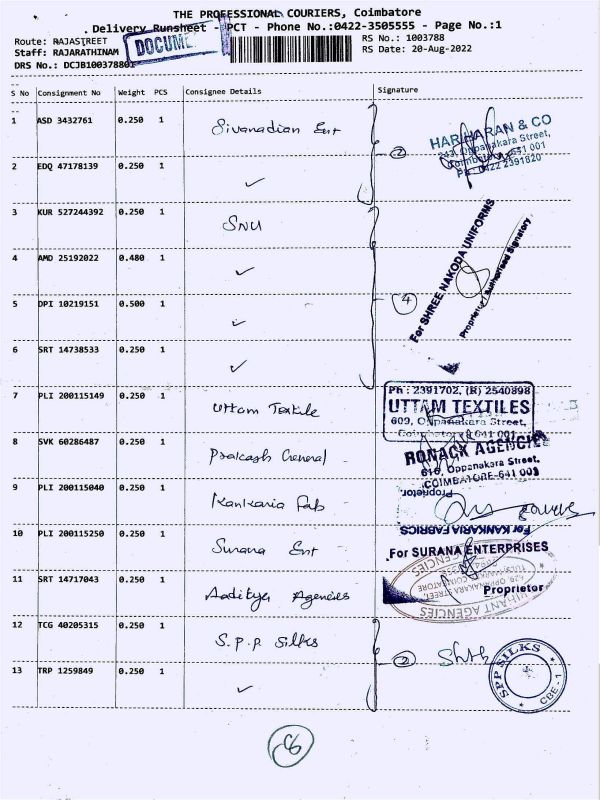 THE PROFESSIONAL COURIERS, Coimbatore
Delivery Runsheet - PCT - Phone No.:0422-3505555 - Page No.:1
Route: RAJASTREET
RS No.: 1003788
Staff: RAJARATHINAM
DOCUME
RS Date: 20-Aug-2022
DRS No.: DCJB100378801
S No Consignment No Weight PCS Consignee Details Signature
1 ASD 3432761 0.250 1 Sivanadian Ent
HARIHARAN & CO
343, Oppanakara Street,
Coimbatore-641 001
Ph: 0422 2391820
2 EDQ 47178139 0.250 1 ✓
2
3 KUR 527244392 0.250 1 SNU
For SHREE NAKODA UNIFORMS
Proprietor / Authorised Signatory
4 AMD 25192022 0.480 1 ✓
5 DPI 10219151 0.500 1 ✓
4
6 SRT 14738533 0.250 1 ✓
7 PLI 200115149 0.250 1 Uttam Textile
Ph : 2391702, (R) 2540898
UTTAM TEXTILES
609, Oppanakara Street,
Coimbatore-641 001
8 SVK 60286487 0.250 1 Prakash General
RONACK AGENCIES
616, Oppanakara Street,
COIMBATORE-641 001
9 PLI 200115040 0.250 1 Kankaria Fab
Proprietor
For KANKARIA FABRICS
10 PLI 200115250 0.250 1 Surana Ent
For SURANA ENTERPRISES
Proprietor
11 SRT 14717043 0.250 1 Aaditya Agencies
AGENCIES
629, OPPANAKARA STREET,
COIMBATORE
12 TCG 40205315 0.250 1 S.P.P. Silks
2
SPP SILKS
CBE-1
13 TRP 1259849 0.250 1 ✓